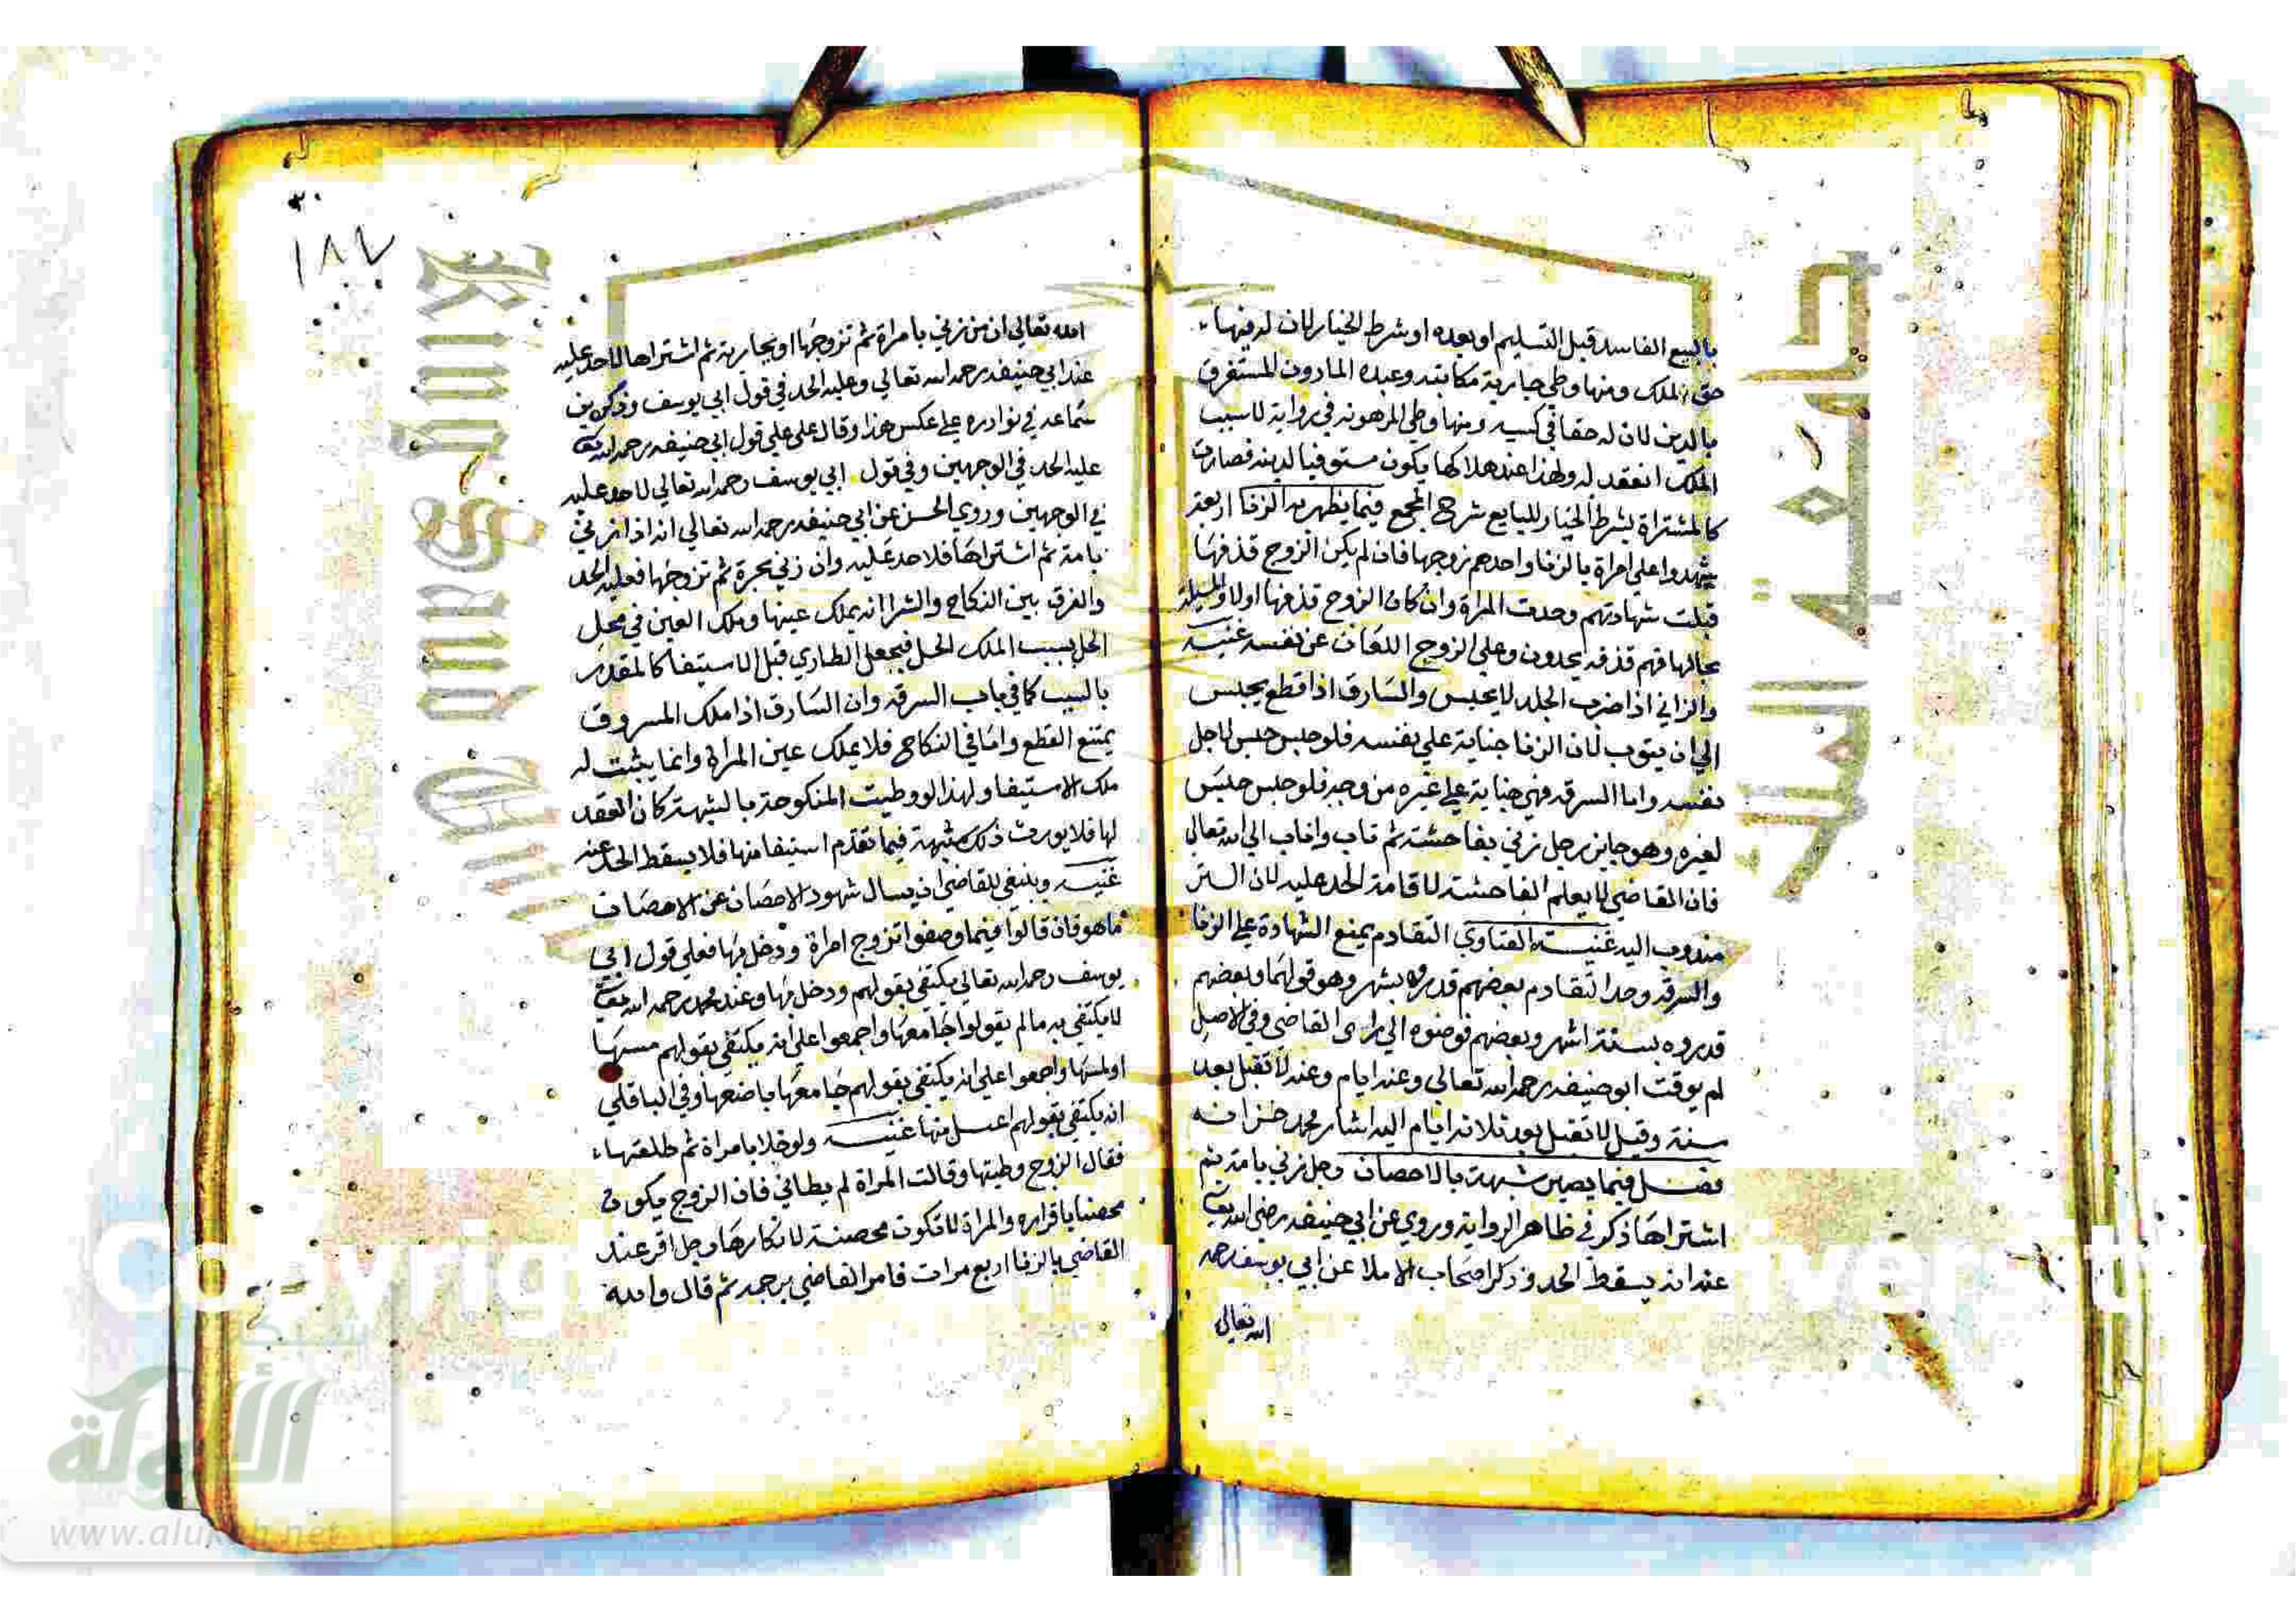 بالبيع الفاسد قبل التسليم او بعده او شرط الخيار لان له فيها
حق الملك ومنها وطي جارية مكاتبه وعبده الماذون المستغرق
بالدين لان له حقا في كسبه ومنها وطي المرهونه في رواية لان سبب
الملك انعقد له ولهذا عند هلاكها يكون مستوفيا لدينه فصارت
كالمشتراة بشرط الخيار للبايع شرح المجمع فيما يظهر به الزنا اربعة
شهدوا على امراة بالزنا واحدهم زوجها فان لم يكن الزوج قذفها
قبلت شهادتهم وحدت المراة وان كان الزوج قذفها اولا والمسيلة
بحالها فهم قذفه يحدون وعلى الزوج اللعان عن نفسه غنيه
والزاني اذا ضرب الجلد لا يحبس والسارق اذا قطع يحبس
الي ان يتوب لان الزنا جناية علي نفسه فلو حبس حبس لاجل
نفسه واما السرقه فهي جناية علي غيره من وجه فلو حبس حبس
لغيره وهو جايز رجل زني بفاحشة ثم تاب واناب الي الله تعالي
فان القاضي لا يعلم الفاحشة لاقامة الحد عليه لان الستر
مندوب اليه غنية الفتاوي التقادم يمنع الشهادة علي الزنا
والسرقه وحد التقادم بعضهم قدروه بشهر وهو قولهما وبعضهم
قدروه بستة اشهر وبعضهم فوضوه الي راى القاضي وفي الاصل
لم يوقت ابو حنيفه رحمه الله تعالي وعنه ايام وعنه لا تقبل بعد
سنة وقيل لا تقبل بعد ثلاثه ايام اليه اشار محمد خزانه
فصل فيما يصير شبهة بالاحصان رجل زني بامة ثم
اشتراها ذكر في ظاهر الرواية وروي عن ابي حنيفه رضي الله تعالى
عنه انه يسقط الحد وذكر اصحاب الاملا عن ابي يوسف رحمه
الله تعالى
١٨٧
الله تعالي ان من زني بامراة ثم تزوجها او بجارية ثم اشتراها لا حد عليه
عند ابي حنيفه رحمه الله تعالي وعليه الحد في قول ابي يوسف وذكر بن
سماعه في نوادره علي عكس هذا وقال علي قول ابي حنيفه رحمه الله تعالى
عليه الحد في الوجهين وفي قول ابي يوسف رحمه الله تعالي لا حد عليه
في الوجهين وروي الحسن عن ابي حنيفه رحمه الله تعالي انه اذا زني
بامة ثم اشتراها فلا حد عليه وان زني بحرة ثم تزوجها فعليه الحد
والفرق بين النكاح والشرا انه يملك عينها وملك العين في محل
الحل بسبب الملك الحل فيجعل الطاري قبل الاستيفا كالمقدر
بالسبب كما في باب السرقه وان السارق اذا ملك المسروق
يمتنع القطع واما في النكاح فلا يملك عين المراة وانما يثبت له
ملك الاستيفا ولهذا لو وطيت المنكوحة بالشبهة كان العقد
لها فلا يورث ذلك شبهة فيما تقدم استيفا منها فلا يسقط الحد عنه
غنيه وينبغي للقاضي ان يسال شهود الاحصان عن الاحصان
ما هو فان قالوا فيما وصفوا تزوج امراة ودخل بها فعلي قول ابي
يوسف رحمه الله تعالي يكتفي بقولهم ودخل بها وعند محمد رحمه الله تعالى
لا يكتفي به ما لم يقولوا جامعها واجمعوا على انه يكتفي بقولهم مسها
او لمسها واجمعوا علي انه يكتفي بقولهم جامعها باضعها وفي الباقلي
انه يكتفي بقولهم اغتسل منها غنيه ولو خلا بامراة ثم طلقها
فقال الزوج وطيتها وقالت المراة لم يطاني فان الزوج يكون
محصنا باقراره والمراة لا تكون محصنة لانكارها رجل اقر عند
القاضي بالزنا اربع مرات فامر القاضي برجمه ثم قال والله
King Saud
جامعة الملك
Copyrig
شبكة
الألوكة
www.alukah.net